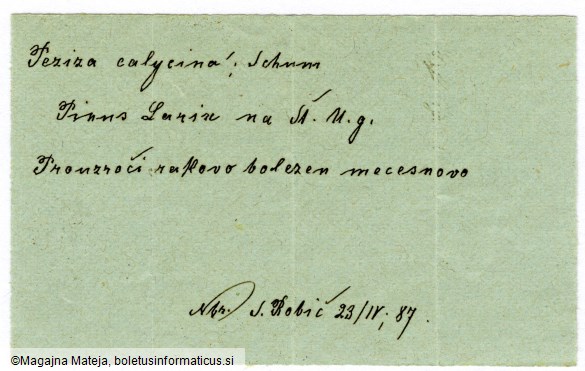 Peziza calycina! Schum
Pinus Larix na Št. U. g.
Prouzroči rakovo bolezen mecesnovo
Nbr. S. Robič 23/IV, 87.
©Magajna Mateja, boletusinformaticus.si